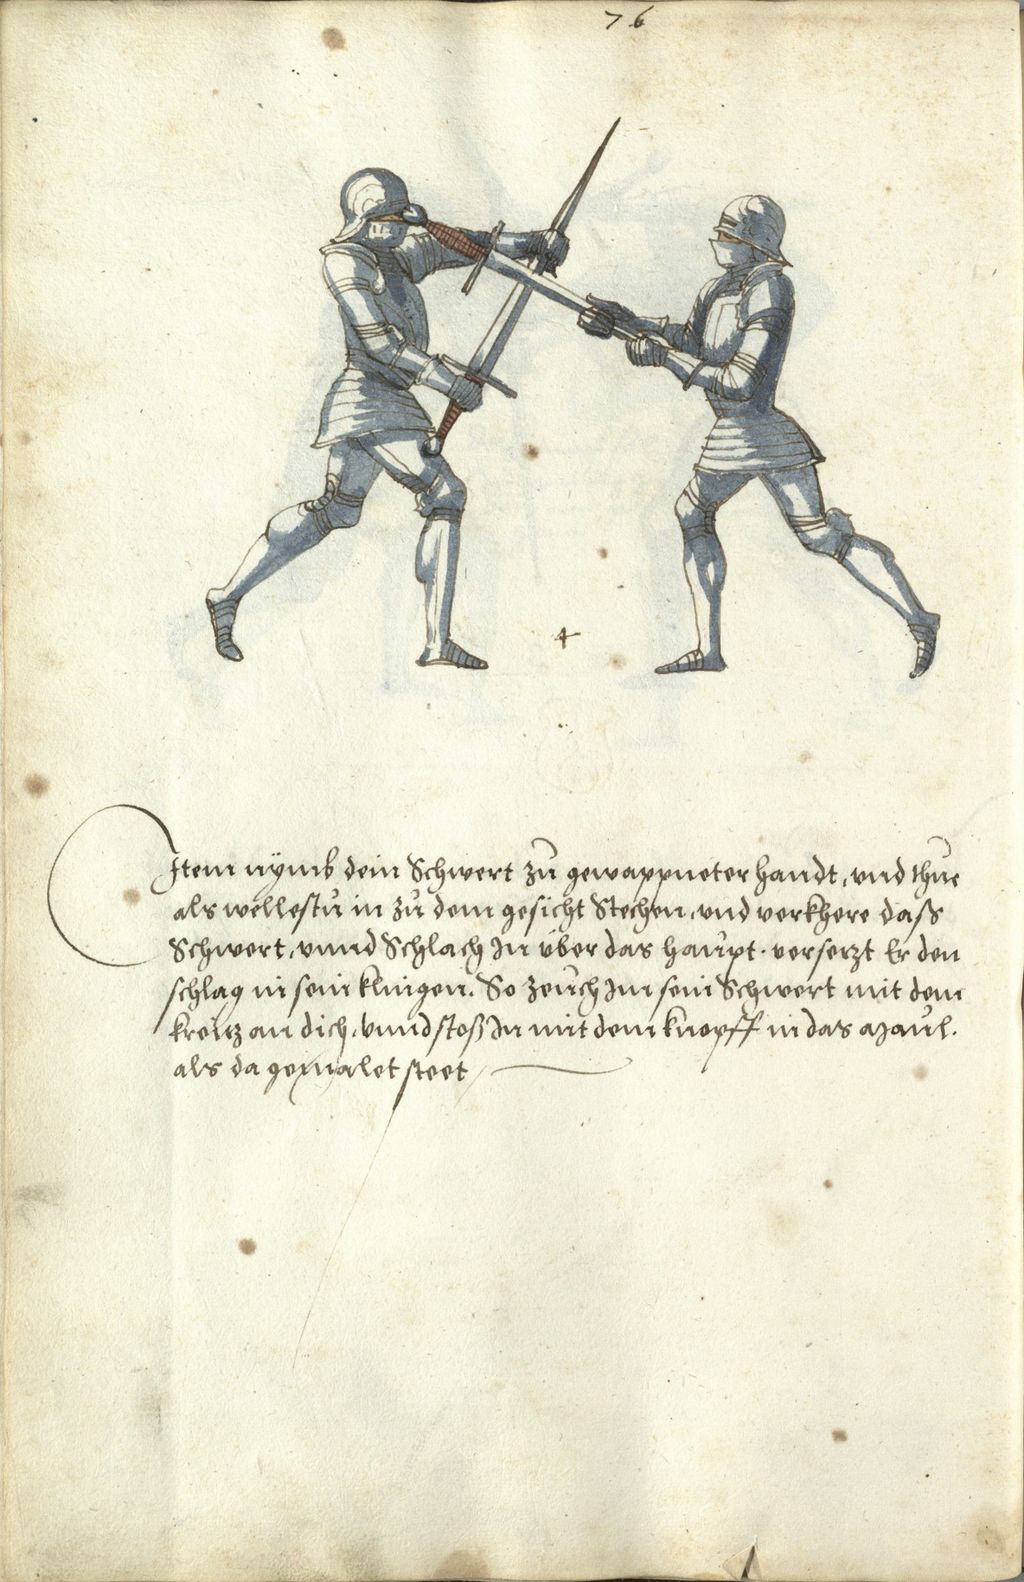 76
4
Item nÿmb dein Schwert zů gewappneter handt, vnd thůe
als wellestu in zů dem gesicht Stechen, vnd verkhere dass
Schwert, vnnd Schlach In über das haupt. versetzt Er den
schlag in sein klingen. So zeuch Im sein Schwert mit dem
kreitz an dich, vnnd stoß In mit dem knopff in das Maul.
als da gemalet steet